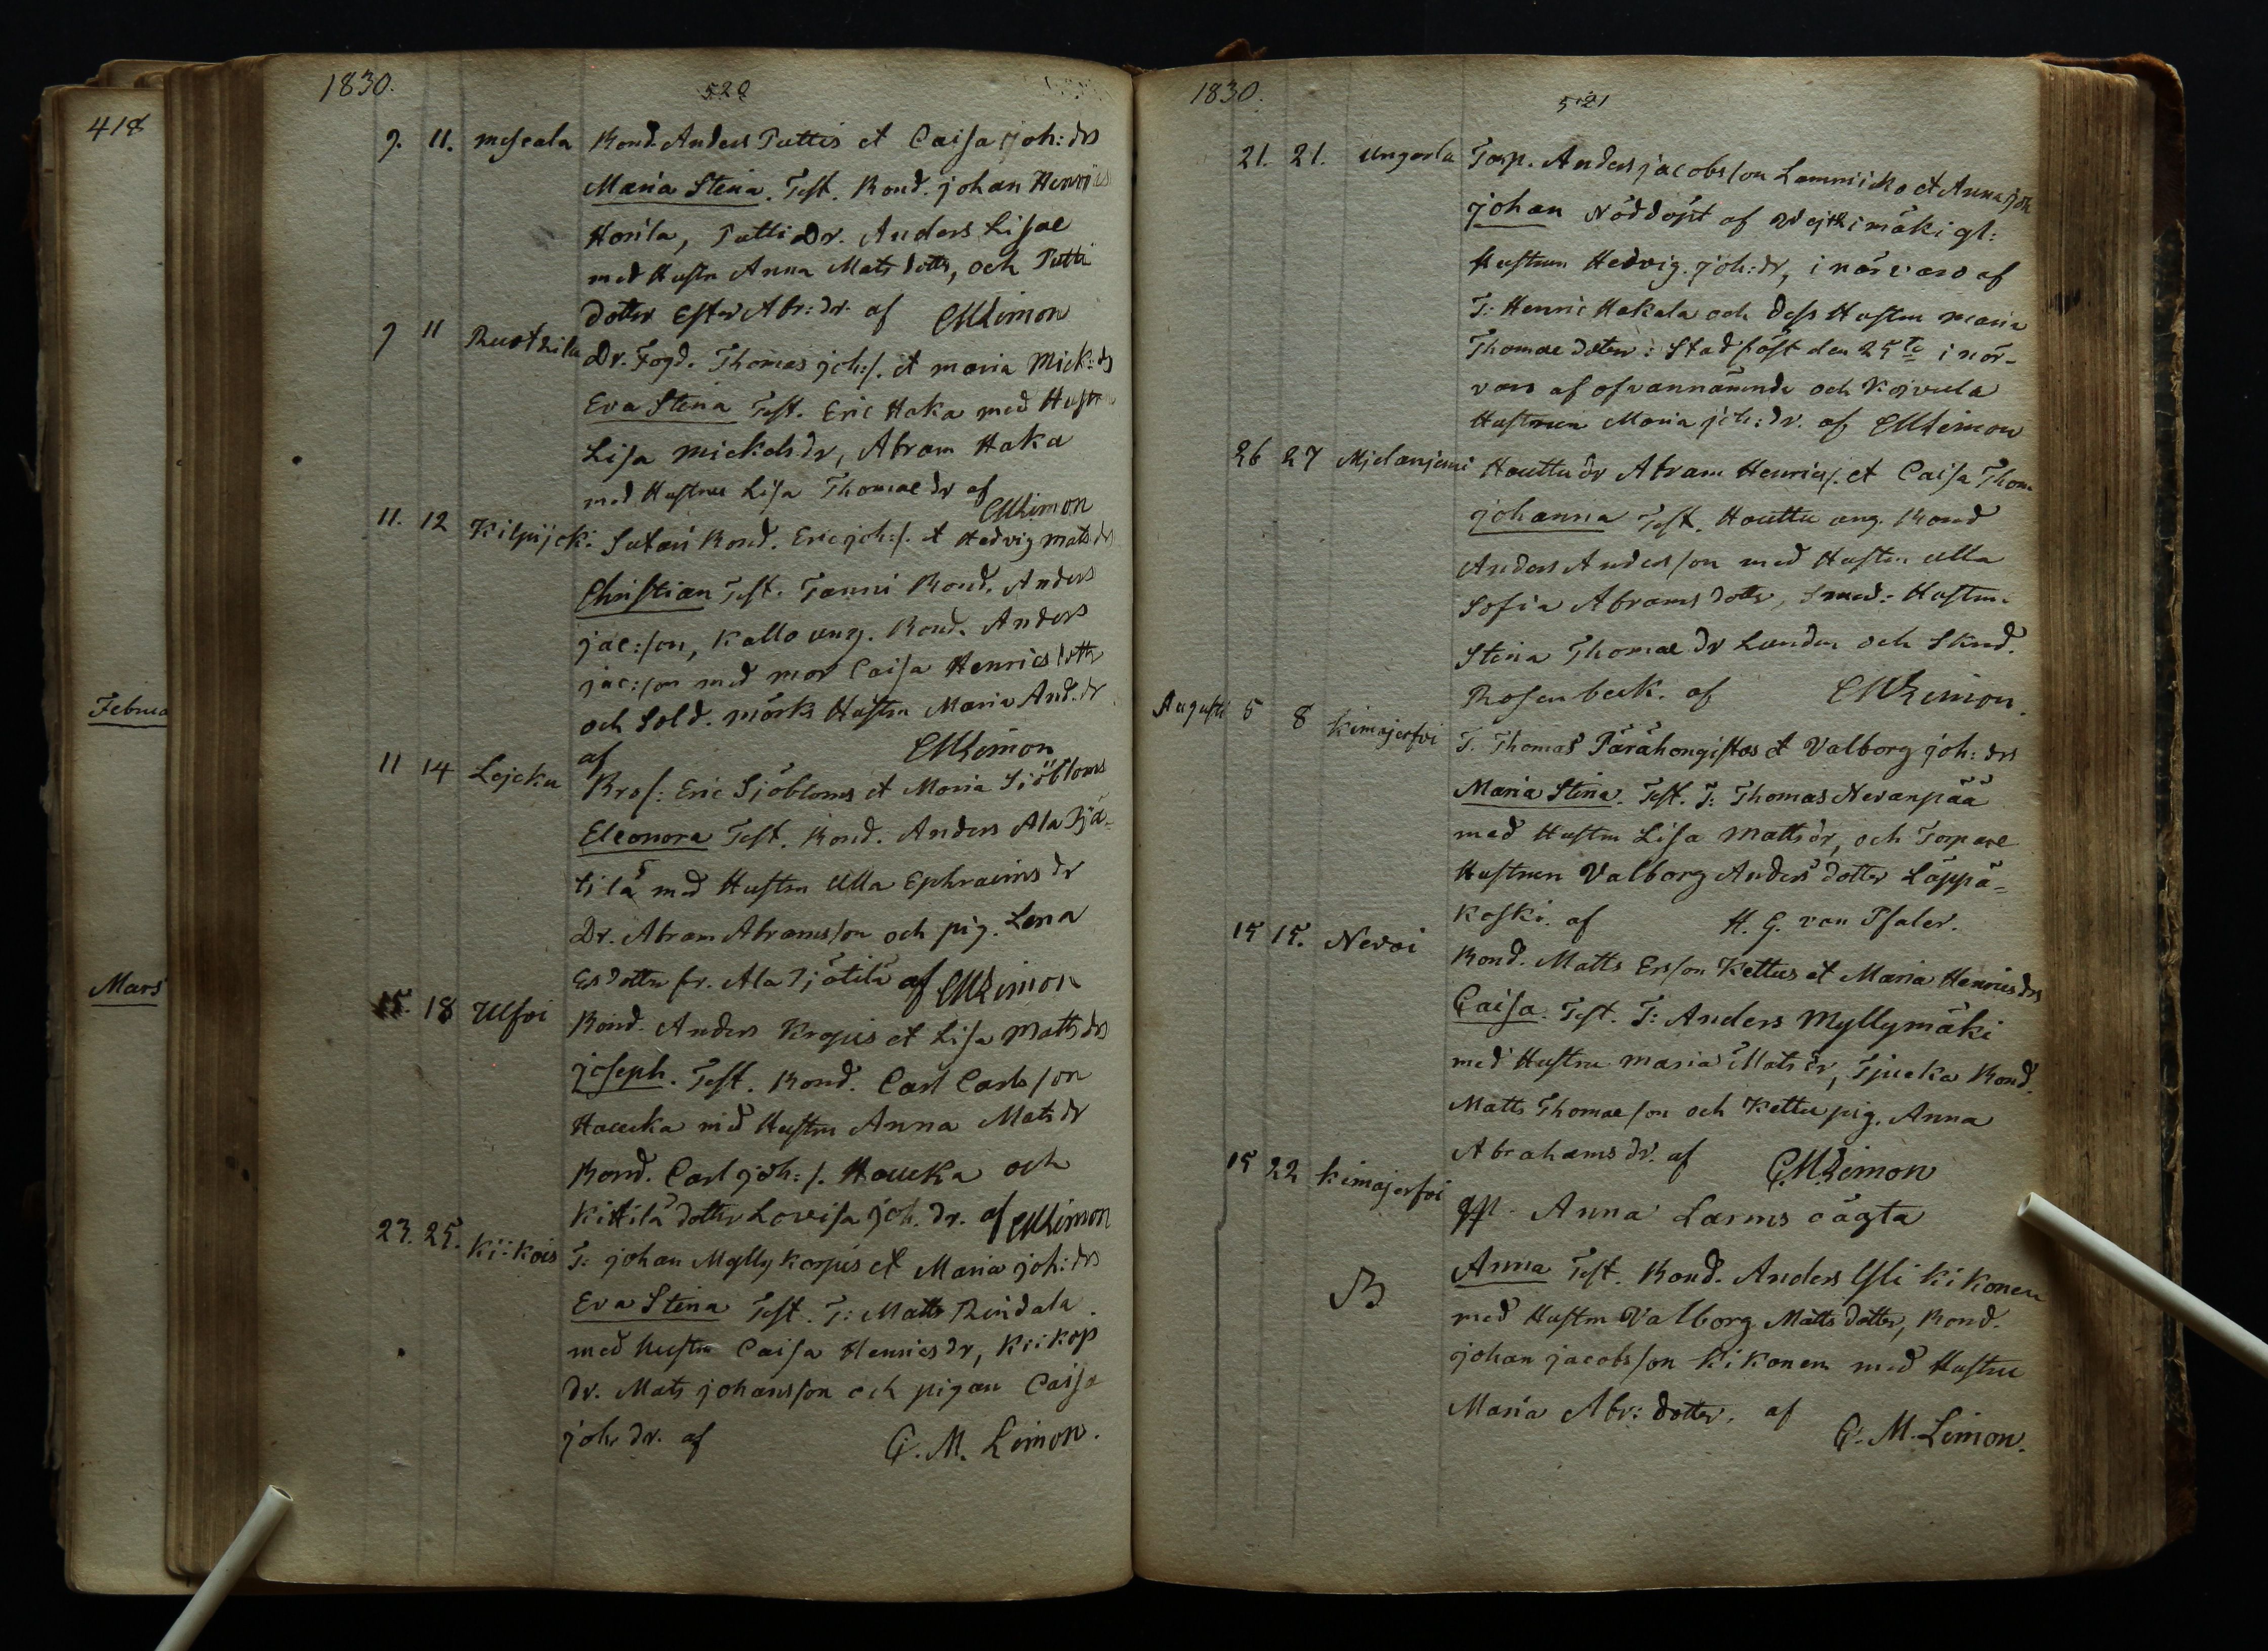 418
Februa
Mars
1830.
520
9. 11. Mescala Bond. Anders Puttis et Caisa Joh: drs
Maria Stina. Test. Bond. Johan Henrics
Horila, Putti Dr. Anders Lisae
med Hustru Anna Mats dottr, och Putti
dotter Ester Abr: dr. af CMLimon
9 11 Dr. Fogd. Thomas Joh:s. et Maria Mick: ds
Eva Stina Test. Eric Haka med Hustru
Lisa Mickels dr, Abram Haka
med Hustru Lisa Thomae dr af
CMLimon
11. 12 Kilpijok: Sutari Bond. Eric Joh:s. et Hedvig Mats drs
Christian Test. Tanni Bond. Anders
Jac:son, Kallo ung. Bond. Anders
Jac:son med mor Caisa Henrics dottr
och Sold. Mörks Hustru Maria And. dr
af CMLimon
11 14 Lojcku Bros: Eric Sjöbloms et Maria Sjöbloms
Eleonora Test. Bond. Anders Ala Pjä-
tilä med Hustru Ulla Ephraims dr
Dr. Abram Abramsson och pig. Lena
Es dotter fr. Ala Pjätilä af CMLimon
15. 18 Ulfvi Bond. Anders Kropis et Lisa Matts drs
Joseph. Test. Bond. Carl Carlsson
Haucka med Hustru Anna Mats dr
Bond. Carl Joh:s. Haucka och
Kittilä dotter Lovisa Joh. dr. af CMLimon
23. 25. Kiikois T: Johan Myllykorpis et Maria Joh: drs
Eva Stina Test. T: Matts Rindala
med Hustru Caisa Henrics dr, Kiikop
dr. Mats Johansson och pigan Caisa
Joh. dr. af C. M. Limon.
1830.
521
21. 21. Ungorla Torp. Anders Jacobsson Lamminko et Anna Joh
Johan Nöddöpt af gl:
Hustrun Hedvig Joh: dr, i närvaro af
T: Henric Hakala och dess Hustru Maria
Thomae dotter: Stadfäst den 25te i när-
varo af ofvannämnde och Kojvula
Hustrun Maria Joh: dr. af CMLimon
26 27 Mjelanjemi Houttu dr Abram Henrics. et Caisa Thom
Johanna Test. Houttu ung. Bond
Anders Andersson med Hustru Ulla
Sofia Abrams dotter, Smed: Hustru
Stina Thomae dr Lunden och Skrid.
Rosenbeck. af CMLimon.
Augusti 5 8 Kimojerfvi T. Thomas Pärähongistos et Valborg Joh: drs
Maria Stina. Test. T: Thomas Nevanpää
med Hustru Lisa Matts dr, och Torpare
Hustrun Valborg Anders dotter Läppä-
koski. af H. G. von Pfaler.
15 15. Nevoi Bond. Matts Ersson Kettus et Maria Henrics drs
Caisa. Test. T: Anders Myllymäki
med Hustru Maria Mats dr, Tjucka Bond.
Matts Thomaeson och Kettu pig. Anna
Abrahams dr. af CMLimon
15 22 Kimojerfvi Anna Larms oägta
B Anna Test. Bond. Anders Yli Kikonen
med Hustru Valborg Matts dotter, Bond.
Johan Jacobsson Kikonen med Hustru
Maria Abr: dotter. af
C. M. Limon.